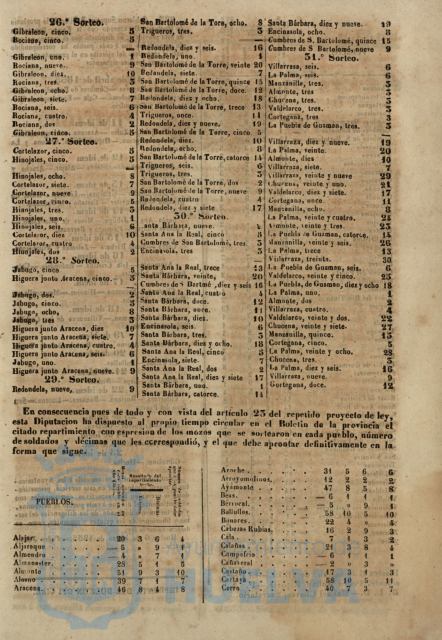 26.° Sorteo.
Gibraleon, cinco. 5
Bociana, cinco. 5
Gibraleon, uno. 1
Rociana, nueve. 9
Gibraleon, diez. 10
Rociana, tres. 3
Gibraleon, ocho. 8
Gibraleon, siete. 7
Rociana, seis. 6
Rociana, cuatro. 4
Rociana, dos 2
Gibraleon, cinco. 5
27.° Sorteo.
Cortelazor, cinco. 5
Hinojales, cinco. 5
Hinojales, ocho. 8
Cortelazor, siete. 7
Cortelazor, nueve. 9
Cortelazor, cinco. 5
Hinojales, tres. 3
Hinojales, uno. 1
Hinojales, seis. 6
Cortelazor, diez 10
Cortelazor, cuatro 4
Hinojales, dos 2
28.° Sorteo.
Jabugo, cinco 5
Higuera junto Aracena, cinco. 5
Jabugo, dos. 2
Jabugo, cinco. 5
Jabugo, ocho. 8
Jabugo, tres 3
Higuera junto Aracena, diez 10
Higuera junto Aracena, siete. 7
Higuera junto Aracena, cuatro. 4
Higuera junto Aracena, seis. 6
Jabugo, uno. 1
Higuera junto Aracena, nueve. 9
29.° Sorteo.
Redondela, nueve. 9
San Bartolomé de la Tore, ocho. 8
Trigueros, tres. 3
Redondela, diez y seis. 16
Redondela, uno. 1
San Bartolomé de la Torre, veinte 20
Redondela, siete 7
San Bartolomé de la Torre, quince 15
San Bartolomé de la Torre, doce. 12
Redondela, diez y ocho. 18
San Bartolomé de la Torre, trece 13
Trigueros, once 11
Redondela, diez y nueve. 19
San Bartolomé de la Torre, cinco 5
Redondela, diez. 10
Redondela, ocho. 8
San Bartolomé de la Torre, catorce 14
Trigueros, seis 6
Trigueros, tres 3
San Bartolomé de la Torre, dos 2
San Bartolomé de la Torre, nueve 9
Redondela, cuatro 4
Redondela, diez y siete 17
30.° Sorteo.
Santa Bárbara, nueve. 9
Santa Ana la Real, cinco
Cumbres de San Bartolomé, tres 3
Encinasola, tres 3
Santa Ana la Real, trece 13
Santa Bárbara, veinte, 20
Cumbres de S Bartmé ,diez y seis 16
Santa Ana la Real, cuatro 4
Santa Bárbara, doce. 12
Santa Bárbara, once. 11
Santa Bárbara, diez. 10
Encinasola, seis. 6
Santa Bárbara, tres. 3
Santa Ana la Real, diez y ocho 18
Santa Ana la Real, cinco
Encinasola, siete. 7
Santa Ana la Real, dos 2
Santa Ana la Real, diez y siete 17
Santa Bárbara, uno. 1
Santa Bárbara, catorce. 14
Santa Bárbara, diez y nueve. 19
Encinasola, ocho. 8
Cumbres de S. Bartolomé, quince 15
Cumbres de S. Bartolomé, nueve 9
31.° Sorteo.
Villarrasa, seis. 6
La Palma, seis. 6
Manzanilla, tres. 3
Almonte, tres 3
Chucena, tres. 3
Valdelarco, tres. 3
Cortegana, tres 3
La Puebla de Guzman, tres. 3
Villarrasa, diez y nueve. 19
La Palma, veinte. 20
Almonte, diez 10
Villarrasa, siete. 7
Villarrasa, veinte y nueve 29
Chucena, veinte y uno. 21
Valdelarco, diez y siete. 17
Cortegana, once. 11
Manzanilla, ocho 8
La Palma, veinte y cuatro. 24
Almonte, veinte y tres. 23
La Puebla de Guzman, catorce. 14
Manzanilla, veinte y seis. 26
La Palma, trece 13
Villarrasa, treinta. 30
La Puebla de Guzman, seis. 6
Valdelarco, veinte y cinco. 25
La Puebla de Guzman, diez y ocho 18
La Palma, uno. 1
Almonte, dos 2
Villarrasa, cuatro. 4
Valdelarco, veinte y dos. 22
Chucena, veinte y siete. 27
Manzanilla, quince. 15
Cortegana, cinco. 5
La Palma, veinte y ocho. 28
Chucena, tres. 3
La Palma, diez y seis. 16
Villarrasa, nueve. 9
Cortegana, doce. 12
En consecuencia pues de todo y con vista del artículo 25 del repetido proyecto de ley,
esta Diputacion ha dispuesto al propio tiempo circular en el Boletin de la provincia el
citado repartimiento con espresion de los mozos que se sortearon en cada pueblo, número
de soldados y décimas que les correspondió, y el que debe aprontar definitivamente en la
forma que sigue.
PUEBLOS.
Alajar. 20 3 6 4
Aljaraque 5 » 9
Almendro 4 » 7
Almonaster. 28 5 1 5
Almonte 51 9 3 10
Alosno 39 7 1 7
Aracena. 46 8 4 8
Aroche. 31 5 6 6
Arroyomolinos. 12 2 2 2
Ayamonte 47 8 5 8
Beas. 6 1 1
Berrocal. 5 » 9 1
Bollullos. 58 10 4 10
Bonares. 22 4 » 4
Cabezas Rubias. 16 2 9 3
Cala. 7 1 3
Calañas. 21 3 8 4
Campofrio 6 1 1
Cañaveral 2 » 3 »
Castaño 17 3 1 3
Cartaya 58 10 5 11
Cerro 40 7 3 7
HUELVA